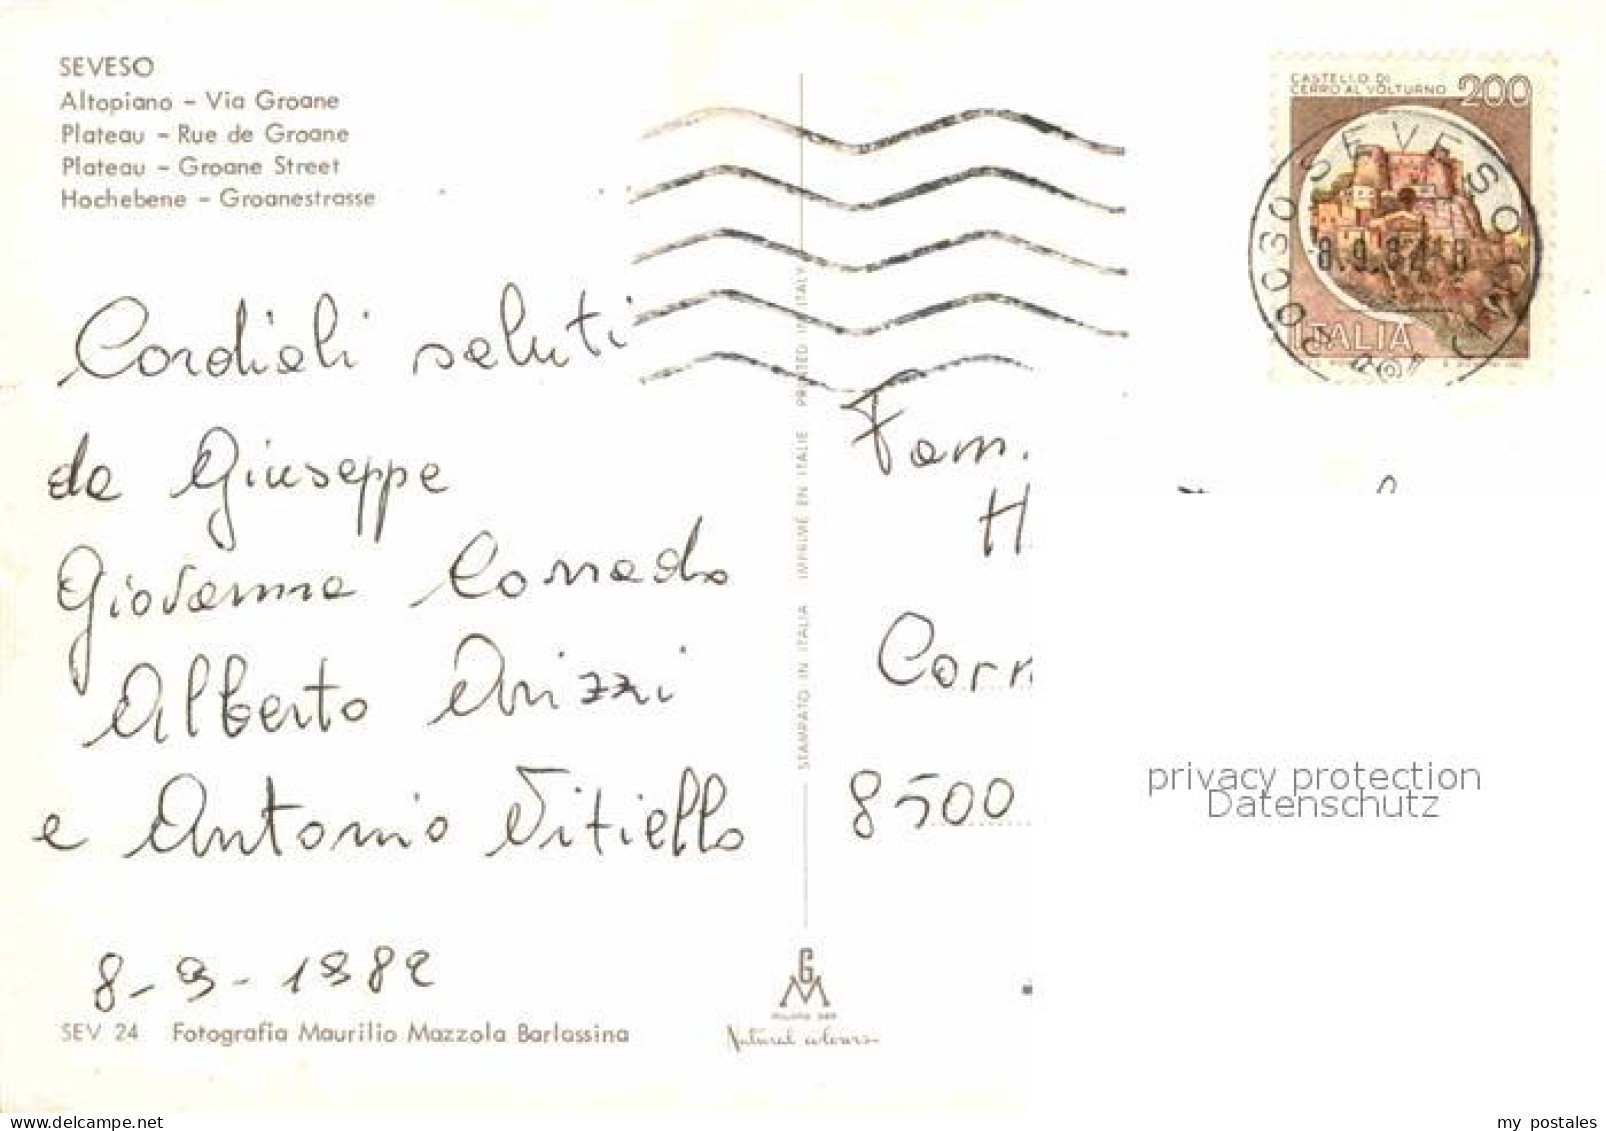 SEVESO
Altopiano - Via Groane
Plateau - Rue de Groane
Plateau - Groane Street
Hochebene - Groanestrasse
CASTELLO DI
CERRO AL VOLTURNO 200
ITALIA
SEVESO
8.9.82
Cordiali saluti
da Giuseppe
Giovanna Corrado
Alberto Arizzi
e Antonio Vitiello
8-9-1982
Fam.
H
Corr
8500
STAMPATO IN ITALIA IMPRIMÉ EN ITALIE PRINTED IN ITALY
privacy protection
Datenschutz
SEV 24 Fotografia Maurilio Mazzola Barlassina
GM
Natural colours
my postales